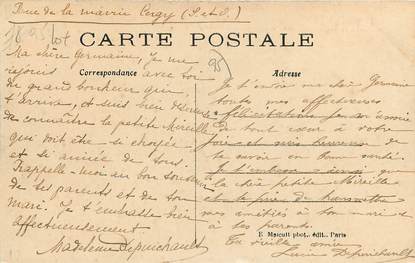 Rue de la mairie Cergy (S.-et-O.)
CARTE POSTALE
Correspondance
Adresse
95
Ma chère Germaine, Je me
réjouis avec toi
du grand bonheur qui
t'arrive, et suis bien désireuse
de connaître la petite Mireille
qui doit être si choyée
et si aimée de tous.
Rappelle-moi au bon souvenir
de tes parents et de ton
mari. Je t'embrasse bien
affectueusement.
Madeleine Depuichault
Je t'envoie ma chère Germaine
toutes mes affectueuses
félicitations
de tout cœur à votre
joie et suis heureuse de
te savoir en bonne santé.
Je t'embrasse ainsi que
ta chère petite Mireille
et te prie de transmettre
mes amitiés à ton mari et
à tes parents.
E. Malcuit phot., édit., Paris
Ta vieille amie
Lucie Depuichault